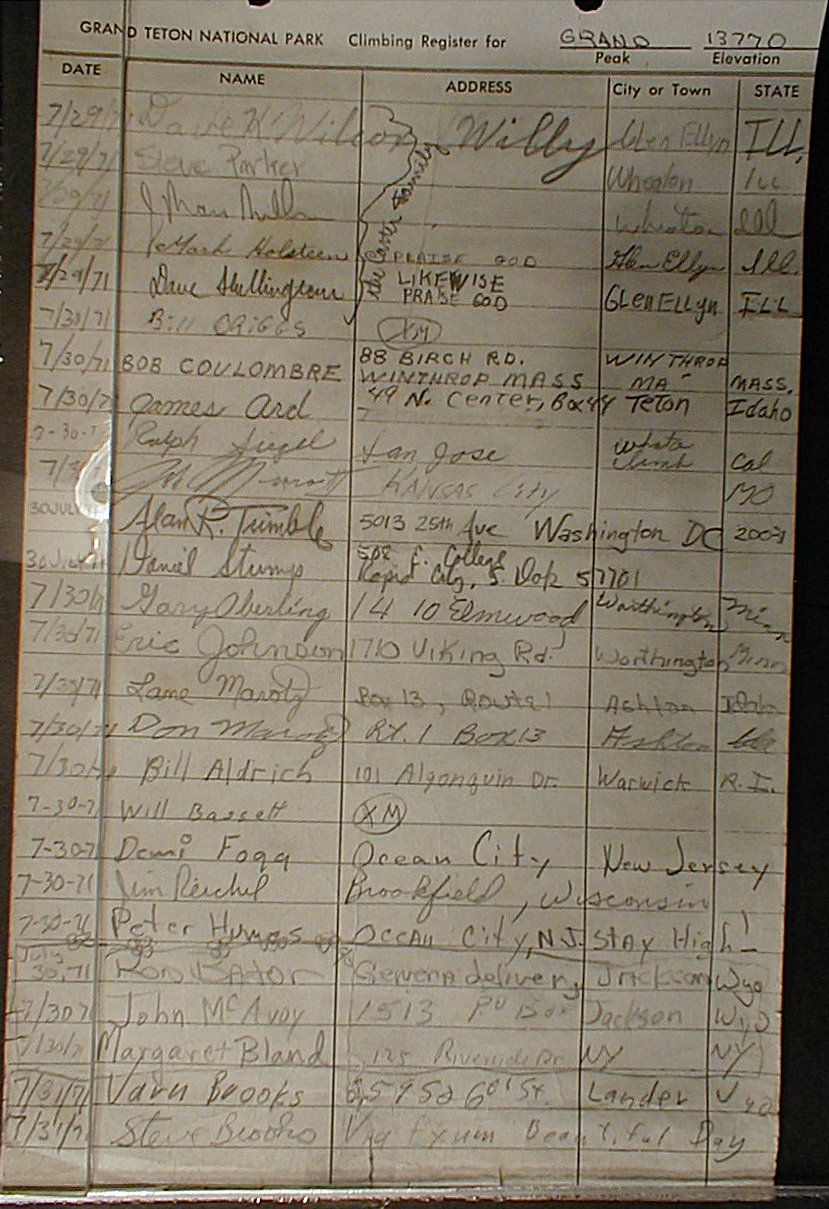 GRAND TETON NATIONAL PARK Climbing Register for GRAND 13770
Peak Elevation
DATE NAME ADDRESS City or Town STATE
7/29/71 Dave K Wilson Willy Glen Ellyn ILL.
7/29/71 Steve Parker Wheaton Ill
7/29/71 Wheaton Ill
7/29/71 Mark Holsteen PRAISE GOD Glen Ellyn Ill.
7/29/71 Dave LIKEWISE PRAISE GOD Glen Ellyn ILL
7/30/71 Bill BRIGGS XM
7/30/71 BOB COULOMBRE 88 BIRCH RD. WINTHROP
WINTHROP MASS MA MASS.
7/30/71 James Ard 49 N. Center, Box 44 Teton Idaho
7-30-7 Ralph Siegel San Jose whata climb Cal
7/3 KANSAS CITY MO
30 JULY 71 Alan R. Trimble 5013 25th Ave Washington DC
30 July 71 Daniel Stump College
Rapid City, S. Dak 57701
7/30/71 Gary Oberling 1410 Elmwood Worthington Minn
7/30/71 Eric Johnson 1710 Viking Rd. Worthington Minn
7/30/71 Lane Marotz Box 13, Route 1 Ashton Idaho
7/30/71 Don Marotz Rt. 1 Box 13 Ashton Ida
7/30/71 Bill Aldrich 101 Algonquin Dr. Warwick R.I.
7-30-71 Will Bassett XM
7-30-71 Demi Fogg Ocean City New Jersey
7-30-71 Jim Reichel Brookfield, Wisconsin
7-30-71 Peter Humes Ocean City, N.J. Stay High!
July 30, 71 Ron Bator General delivery Jackson Wyo
7/30/71 John McAvoy 1513 Jackson Wyo
7/30/71 Margaret Bland 125 Riverside Dr NY NY
7/31/71 Varn Brooks Lander Wyo
7/31/71 Steve Brooks Via Exum Beautiful Day